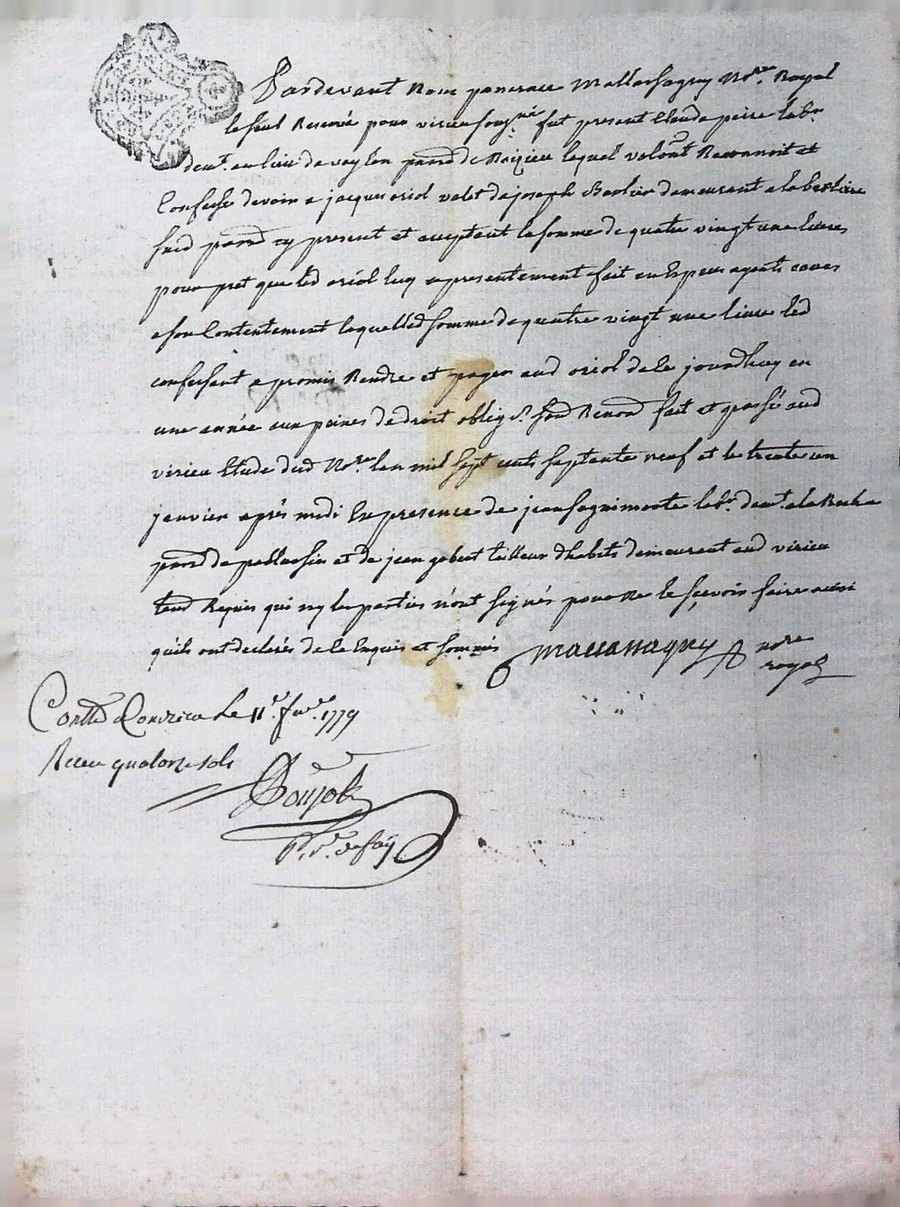 Pardevant Nous pancrace Mallassagny No.re Royal
le seul Reservé pour virieu sousg.né fut present Claude peire lab.r
dem.t au lieu de vaylon parr.e de lequel volont. Reconnoit et
Confesse devoir a jacques oriol valet de joseph Barlier demeurant a la
susd parr.e cy present et acceptant la somme de quatre vingt une livres
pour pret que led oriol luy a presentement fait en Especes agents cours
a son Contentement laquelled somme de quatre vingt une livre led
confessant a promis Rendre et payer aud oriol de ce jourdhuy en
une année aux paines de droit oblig s. Renond fait et passé aud
virieu Etude dud No.re lan mil sept cents septante neuf et le trente un
janvier après midi En presence de jean fagnimonte lab.r dem.t a la Roche
parr.e de pellassin et de jean gobert tailleur dhabits demeurant aud virieu
temd Requis qui ny les parties n'ont signés pour ne le sçavoir faire ainsi
qu'ils ont declarés de ce Enquis et sommés Mallassagny no.re
royal
Con.tllé a Condrieu le 11.e fev.r 1779
Receu quatorze sols
Boujol